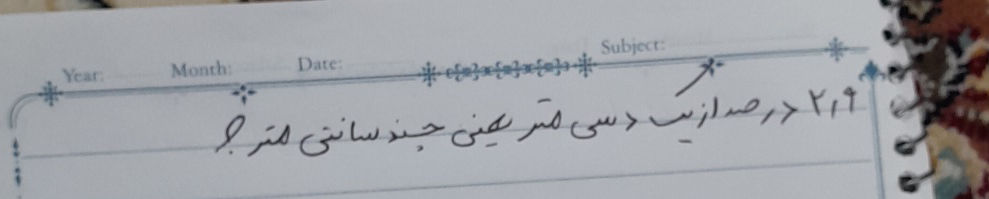 Year: Month: Date: Subject:
۲٫۹ درصد از یک دسی متر یعنی چند سانتی متر ؟